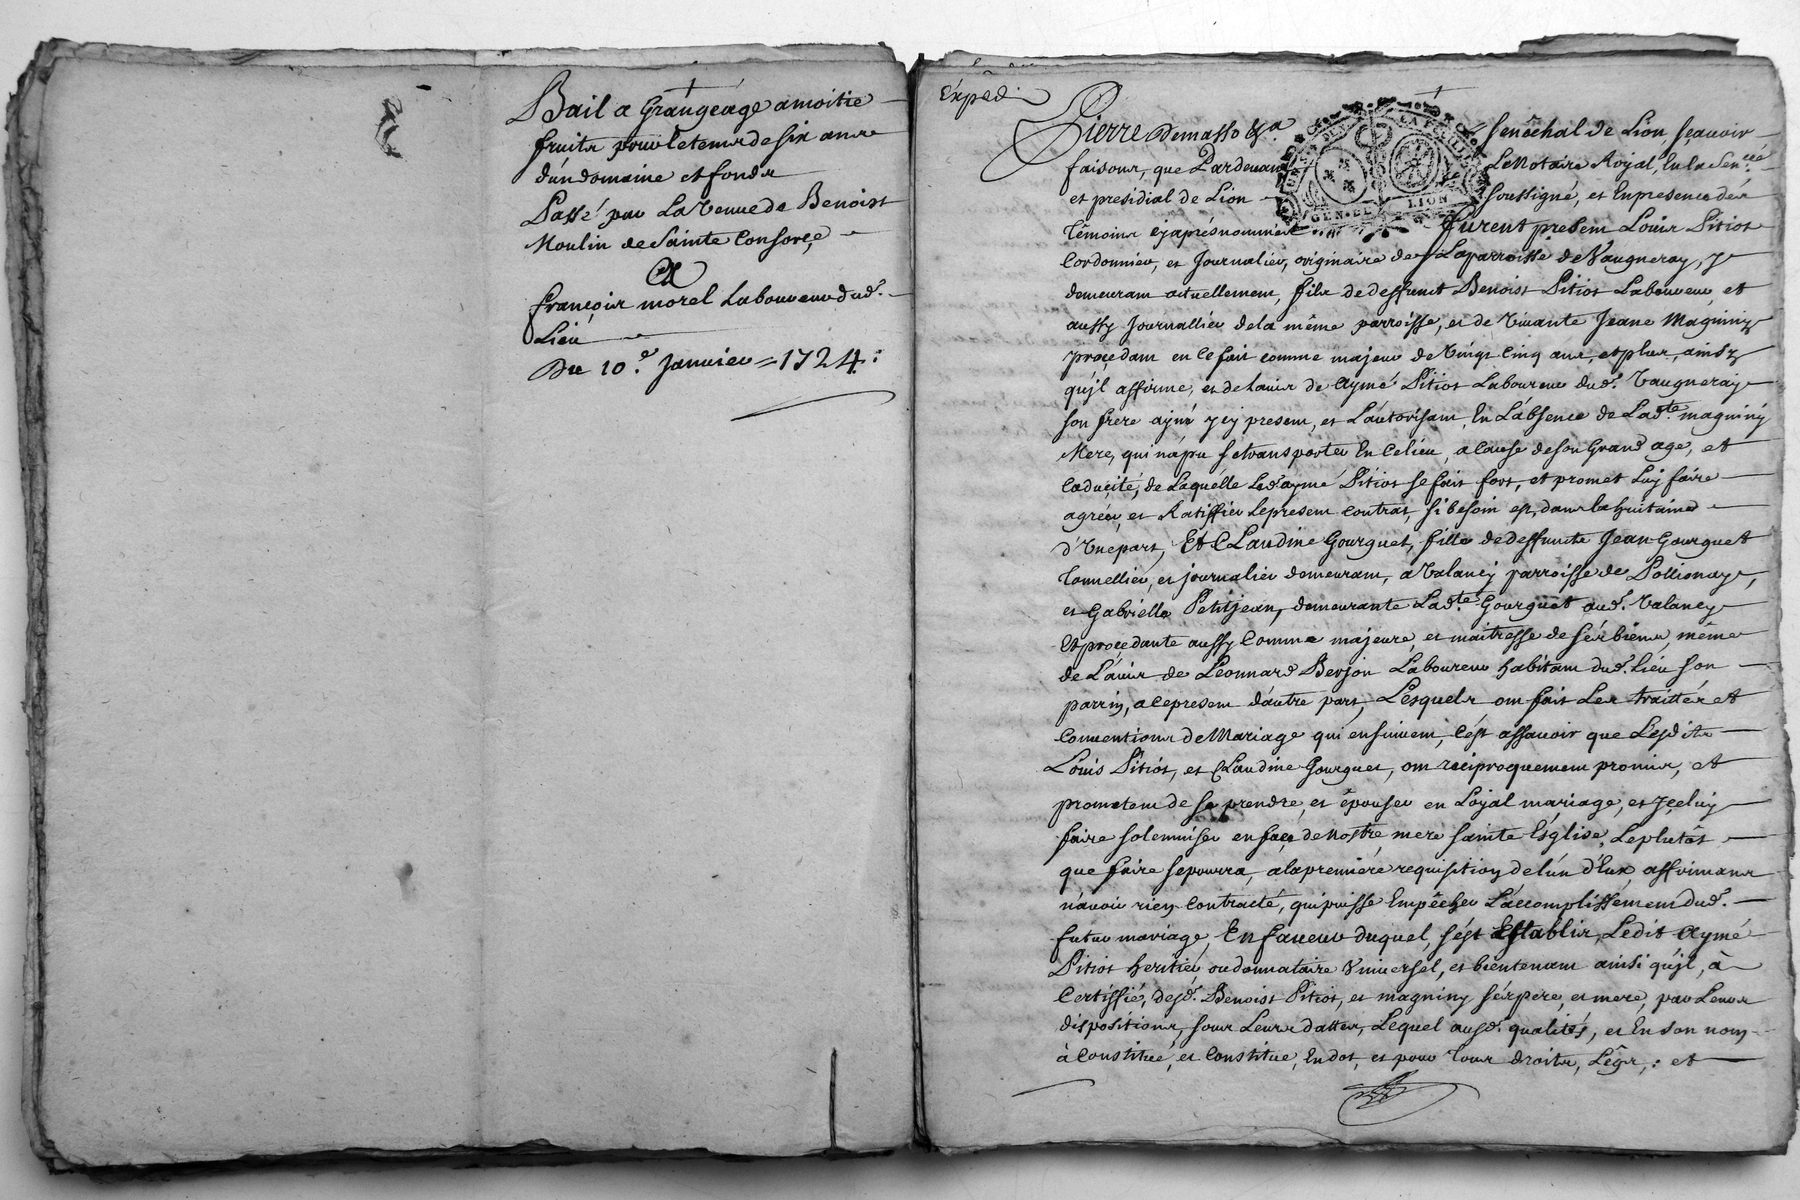 Bail a Grangeage a moitie
fruits pour le tems de six ans
d'un domaine et fonds
Passé par La Veuve de Benoist
Moulin de Sainte Consorçe
A
françois morel Laboureur dud.
Lieu
Du 10.e Janvier = 1724 :
Expedié
Pierre Demasso &a Senéchal de Lion, sçavoir
faisons, que Pardevant Le Notaire Royal, En la Sen.cée
et presidial de Lion soussigné, et En presence des
Têmoins cy aprés nommés furent presens Louis Pitiot
Cordonnier, et Journalier, originaire de La parroisse de Vaugneray, y
demeurant actuellement, fils de deffunct Benoist Pitiot Laboureur, et
aussy Journallier de la même parroisse, et de Vivante Jeane Magniny
procedant en ce fait comme majeur de Vingt Cinq ans, et plus, ainsy
qu'jl affirme, et de L'avis de Aymé Pitiot Laboureur dud. Vaugneray
son frere ayné jcy present, et L'autorisant, En L'absence de Lad.te magniny
Mere, qui n'a pu se transporter En ce lieu, a Cause de son Grand age, et
Caducité, de Laquelle Led. aymé Pitiot se fait fort, et promet Luy faire
agréer, et Ratiffier Le present Contrat, si besoin est, dans la huitaine
d'Une part, Et Claudine Gourguet, fille de deffuncte Jean Gourguet
Tonnellier, et journalier demeurant, a Valancy parroisse de Pollionay,
et Gabrielle Petitjean, demeurante Lad.te Gourguet aud. Valancy
Et procedante aussy Comme majeure, et maitresse de sés biens, même
de L'avis de Leonnard Berjon Laboureur habitant dud. Lieu son
parrin, a ce present d'autre part, Lesquels ont fait Les traittés et
Conventions de Mariage qui ensuivent, C'ést assavoir que Lesdits
Louis Pitiot, et Claudine Gourguet, ont reciproquement promis, et
promettent de se prendre, et épouser en Loyal mariage, et jçeluy
faire solemniser en façe de Nostre mere sainte Esglise, Le plutôt
que faire se pourra, a la premiere requisition de l'un d'Eux, affirmans
n'avoir rien Contracté, qui puisse Empêcher L'accomplissement dud.
futur mariage, En faveur duquel, s'ést Establis, Ledit Aymé
Pitiot heritier, ou donnataire Universel, et bientenant ainsi qu'jl, à
Certiffié, desd. Benoist Pitiot, et magniny sés pere, et meré, par Leurs
dispositions, sous Leurs dattes, Lequel ausd. qualités, et En son nom
à Constitué, et Constitue, En dot, et pour Tous droits, Légs, : et